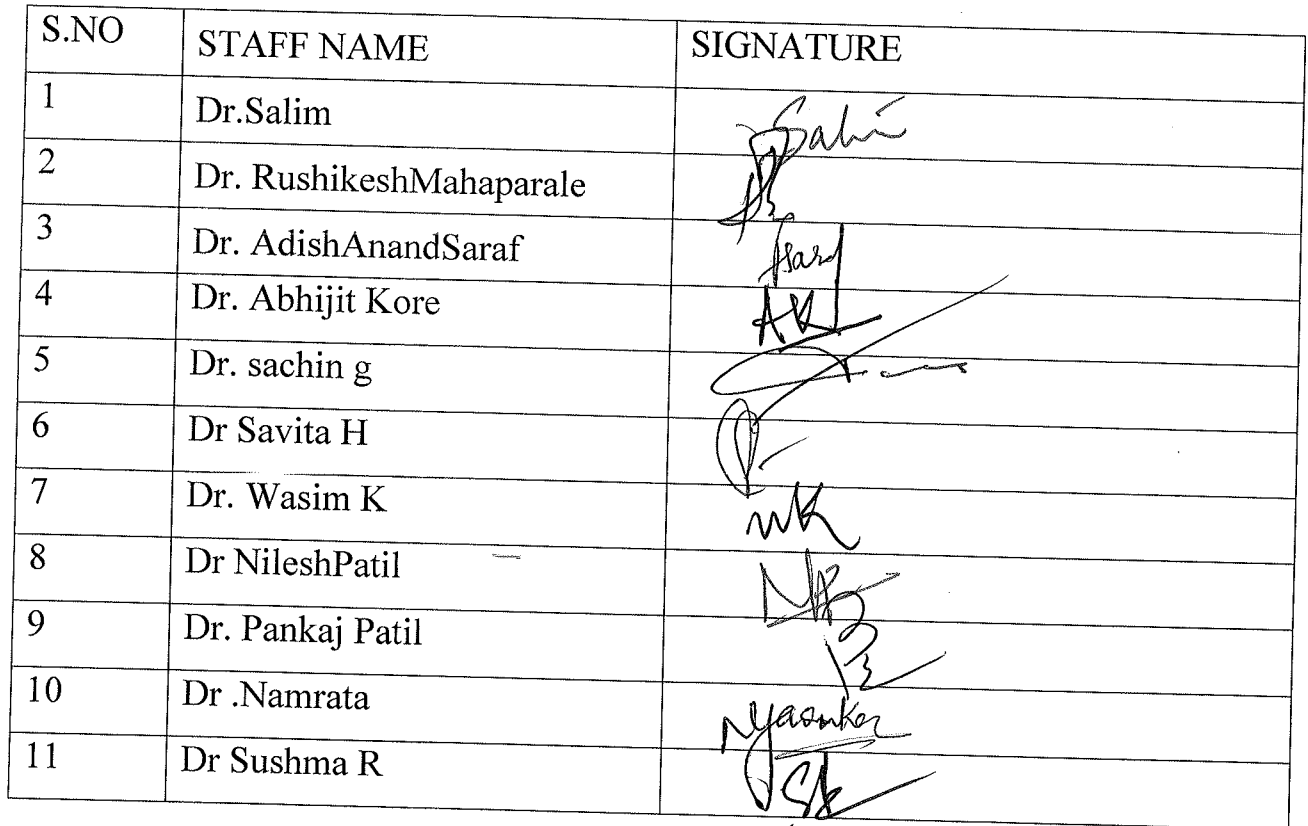 S.NO STAFF NAME SIGNATURE
1 Dr.Salim Salim
2 Dr. RushikeshMahaparale
3 Dr. AdishAnandSaraf
4 Dr. Abhijit Kore AK
5 Dr. sachin g
6 Dr Savita H
7 Dr. Wasim K WK
8 Dr NileshPatil
9 Dr. Pankaj Patil
10 Dr .Namrata
11 Dr Sushma R